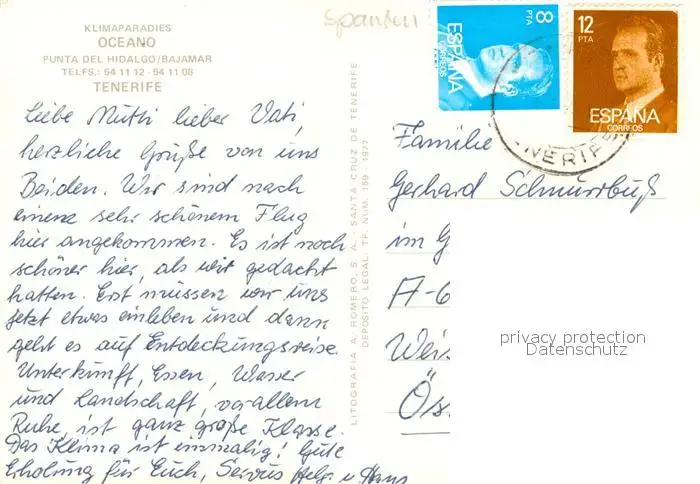 KLIMAPARADIES
OCEANO
PUNTA DEL HIDALGO/BAJAMAR
TELFS.: 54 11 12 - 54 11 08
TENERIFE
Spanien
8
PTA
ESPAÑA
CORREOS
12
PTA
ESPAÑA
CORREOS
NERIFE
Liebe Mutti lieber Vati,
herzliche Grüße von uns
Beiden. Wir sind nach
einem sehr schönem Flug
hier angekommen. Es ist noch
schöner hier, als wir gedacht
hatten. Erst müssen wir uns
jetzt etwas einleben und dann
geht es auf Entdeckungsreise.
Unterkunft, Essen, Wasser
und Landschaft, vor allem
Ruhe, ist ganz große Klasse.
Das Klima ist einmalig! Gute
Erholung für Euch, Servus Helg. u. Hans
LITOGRAFIA A. ROMERO, S. A. - SANTA CRUZ DE TENERIFE
DEPOSITO LEGAL: TF. NUM. 159 - 1977
Familie
Gerhard Schnurrbuß
im G
A-6
Weis
Ös
privacy protection
Datenschutz